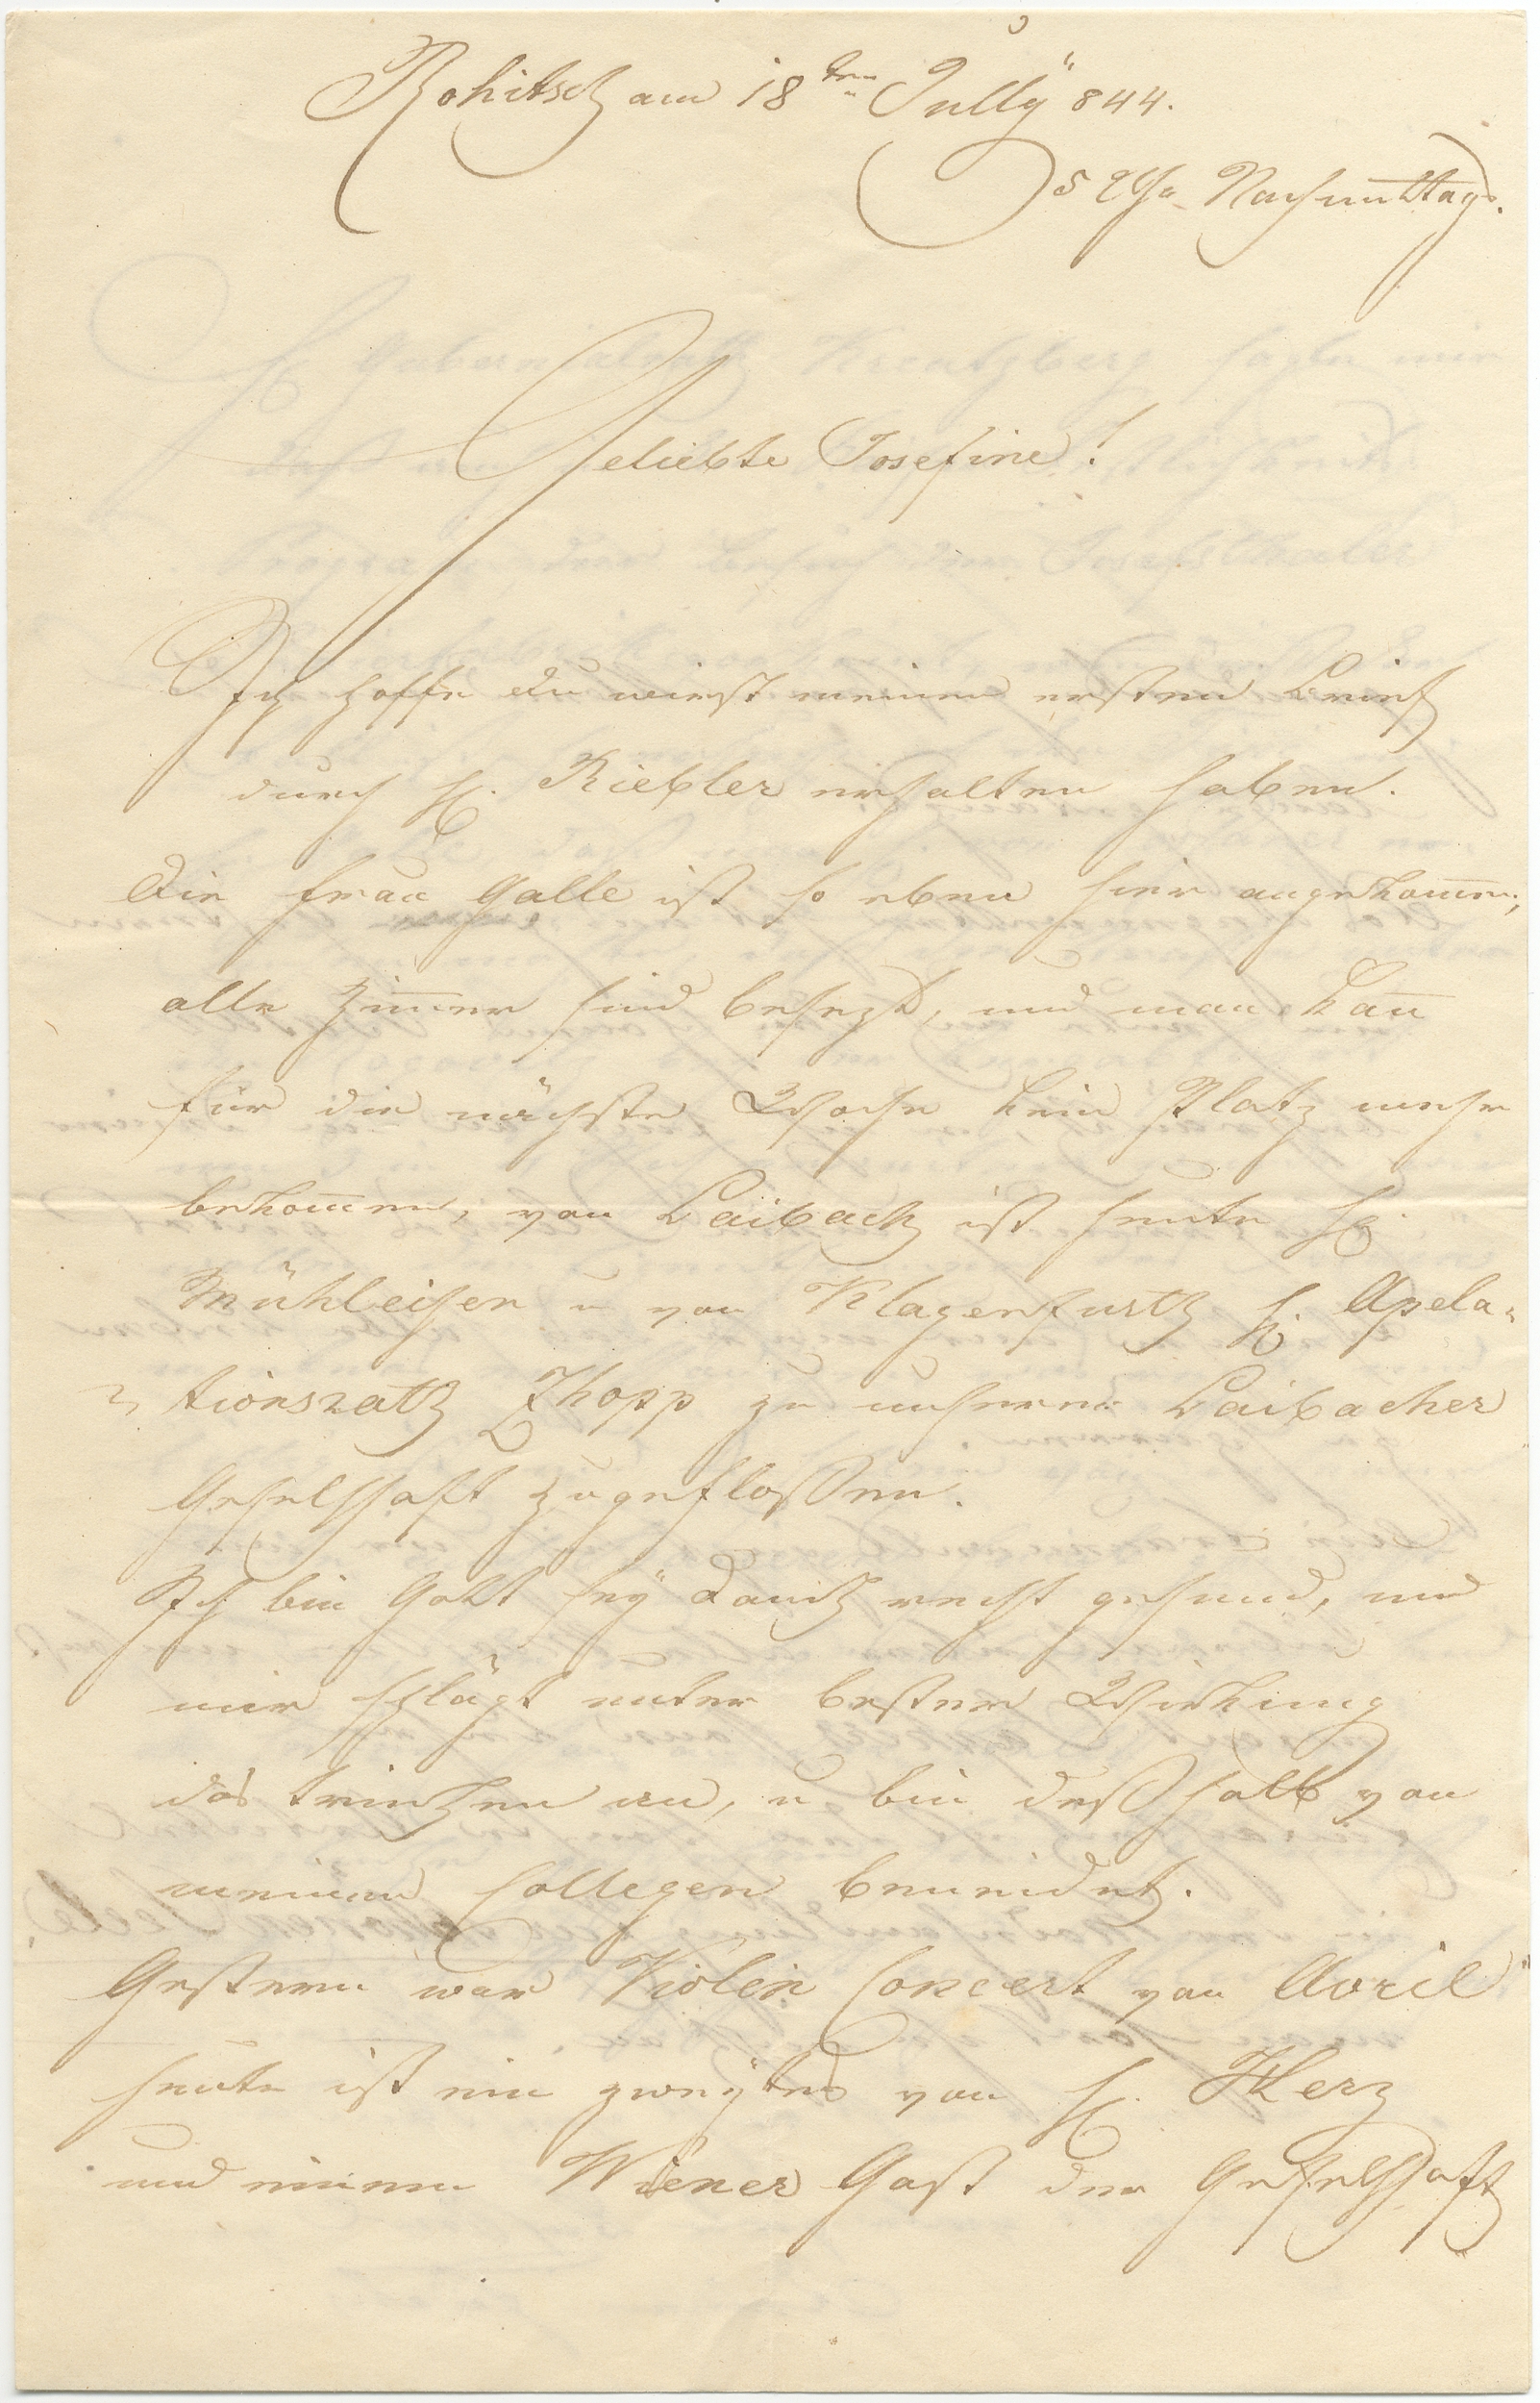 Rohitsch am 18ten July 844.
5 Uhr Nachmittags.
Geliebte Josefine!
Ich hoffe du wirst meinen ersten Brief
durch H. Riebler erhalten haben.
Die Frau Galle ist so eben hier angekom̄en,
alle Zim̄er sind besezt, und man kan̄
für die nächste Woche kein Platz mehr
bekom̄en, von Laibach ist heute H.
Mühleisen u von Klagenfurth H. Apela-
tionsrath Zhopp zu unserer Laibacher
Geselschaft zugefloßen.
Ich bin Gott seÿ Dank recht gesund, und
mir schlägt unter bester Wirkung
das trinken an, u bin deßhalb von
meinen Collegen beneidet.
Gestern war Violin Concert von Avril
heute ist ein zweÿtes von H. Herz
und einem Wiener Gast der Geselschaft